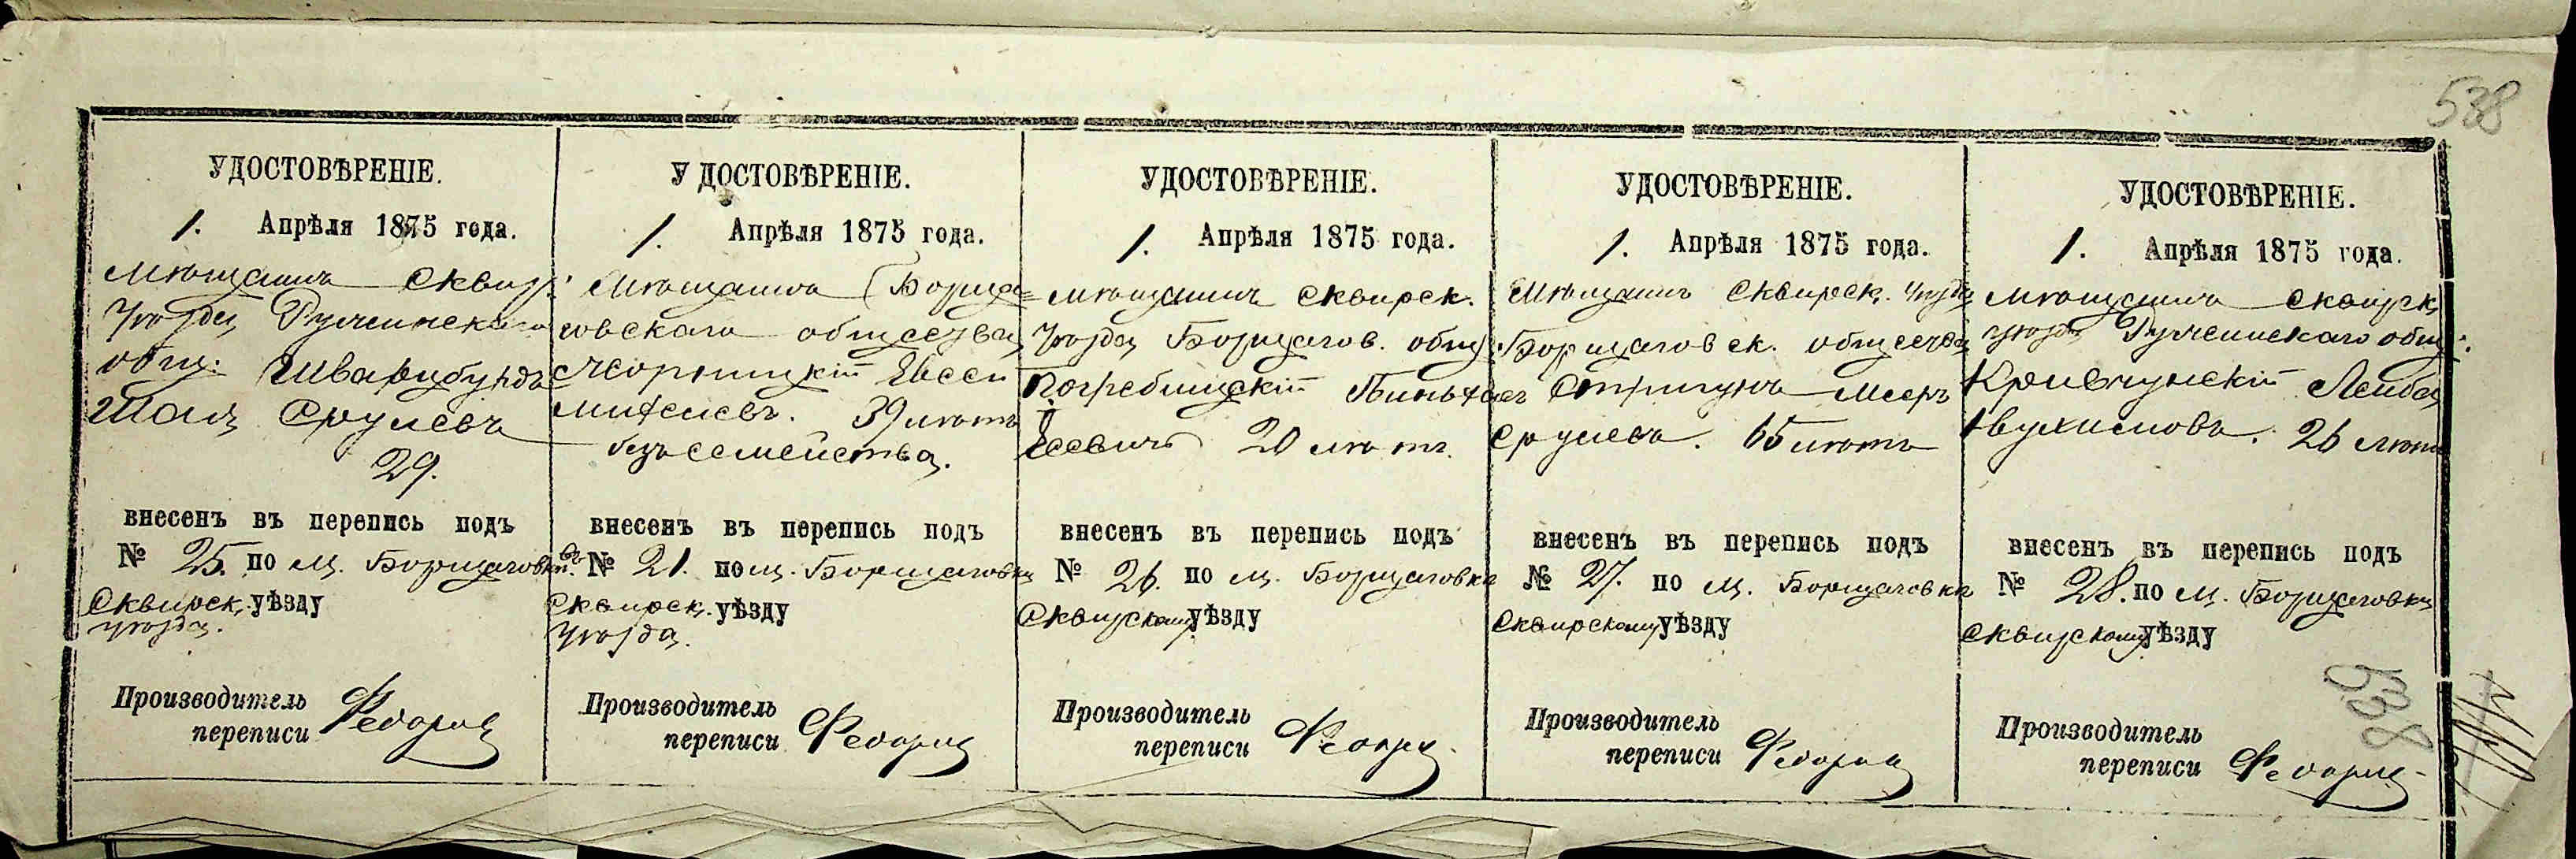 538
УДОСТОВѢРЕНІЕ.
1. Апрѣля 1875 года.
Мѣщанинъ Сквир.
уѣзда Ружинскаго
общ. Шварцбурдъ
Шая Срулевъ
29.
внесенъ въ перепись подъ
№ 25. по м. Борщаговкѣ
Сквирск. уѣзду
уѣзда.
Производитель
переписи
УДОСТОВѢРЕНІЕ.
1. Апрѣля 1875 года.
Мѣщанинъ Борща-
говскаго общества
Чорницкій Евсей
39 лѣтъ
безъ семейства.
внесенъ въ перепись подъ
№ 21. по м. Борщаговкѣ
Сквирск. уѣзду
уѣзда.
Производитель
переписи
УДОСТОВѢРЕНІЕ.
1. Апрѣля 1875 года.
Мѣщанинъ Сквирск.
уѣзда Борщагов. общ.
Погребищскій
20 лѣтъ.
внесенъ въ перепись подъ
№ 26. по м. Борщаговкѣ
Сквирскому уѣзду
Производитель
переписи
УДОСТОВѢРЕНІЕ.
1. Апрѣля 1875 года.
Мѣщанинъ Сквирск. уѣзда
Борщаговск. общества
Стригунъ Мееръ
Срулевъ. 65 лѣтъ
внесенъ въ перепись подъ
№ 27. по м. Борщаговкѣ
Сквирскому уѣзду
Производитель
переписи
УДОСТОВѢРЕНІЕ.
1. Апрѣля 1875 года.
Мѣщанинъ Сквирск.
уѣзда Ружинскаго общ.
Кривчунскій Лейба
26 лѣтъ
внесенъ въ перепись подъ
№ 28. по м. Борщаговкѣ
Сквирскому уѣзду
Производитель
переписи
538